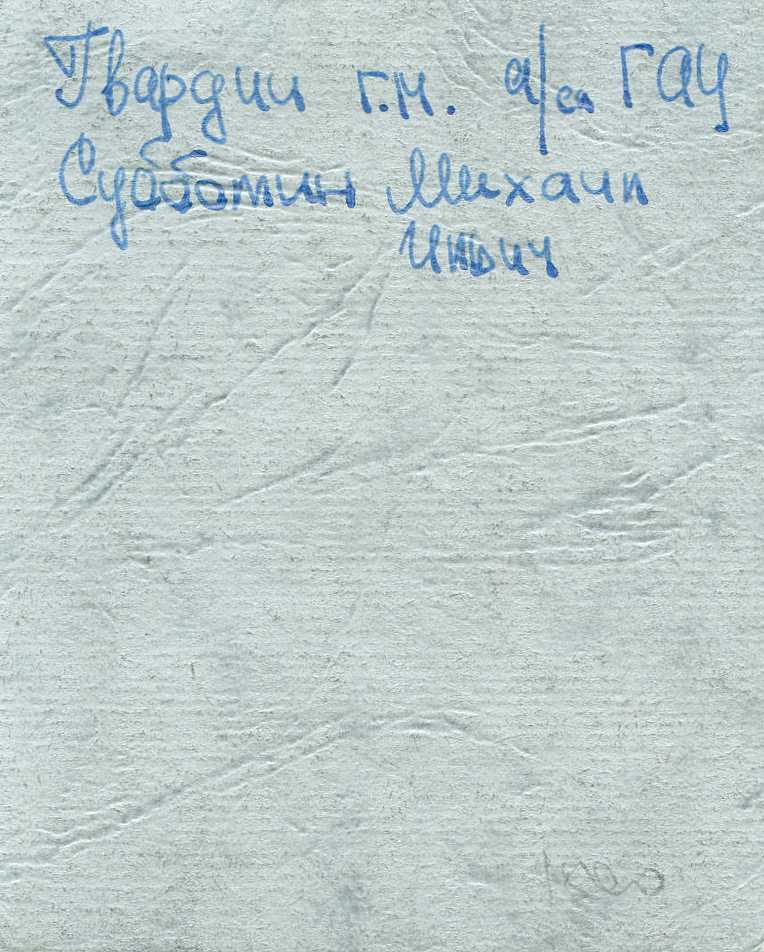 Гвардии г.м. а/са ГАУ
Субботин Михаил
Ильич